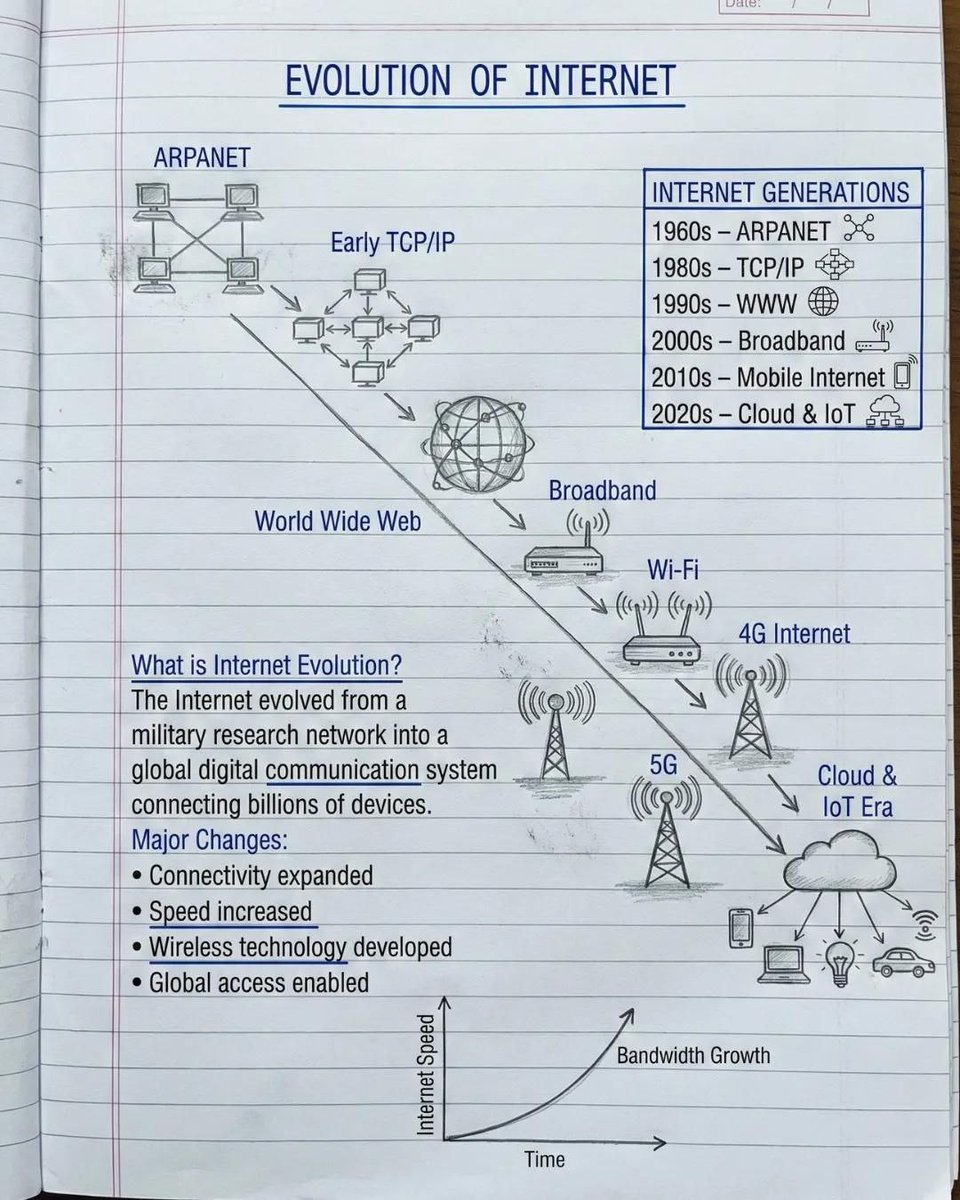 Date: / /
EVOLUTION OF INTERNET
ARPANET
Early TCP/IP
INTERNET GENERATIONS
1960s – ARPANET
1980s – TCP/IP
1990s – WWW
2000s – Broadband
2010s – Mobile Internet
2020s – Cloud & IoT
World Wide Web
Broadband
Wi-Fi
4G Internet
5G
Cloud &
IoT Era
What is Internet Evolution?
The Internet evolved from a
military research network into a
global digital communication system
connecting billions of devices.
Major Changes:
• Connectivity expanded
• Speed increased
• Wireless technology developed
• Global access enabled
Internet Speed
Bandwidth Growth
Time